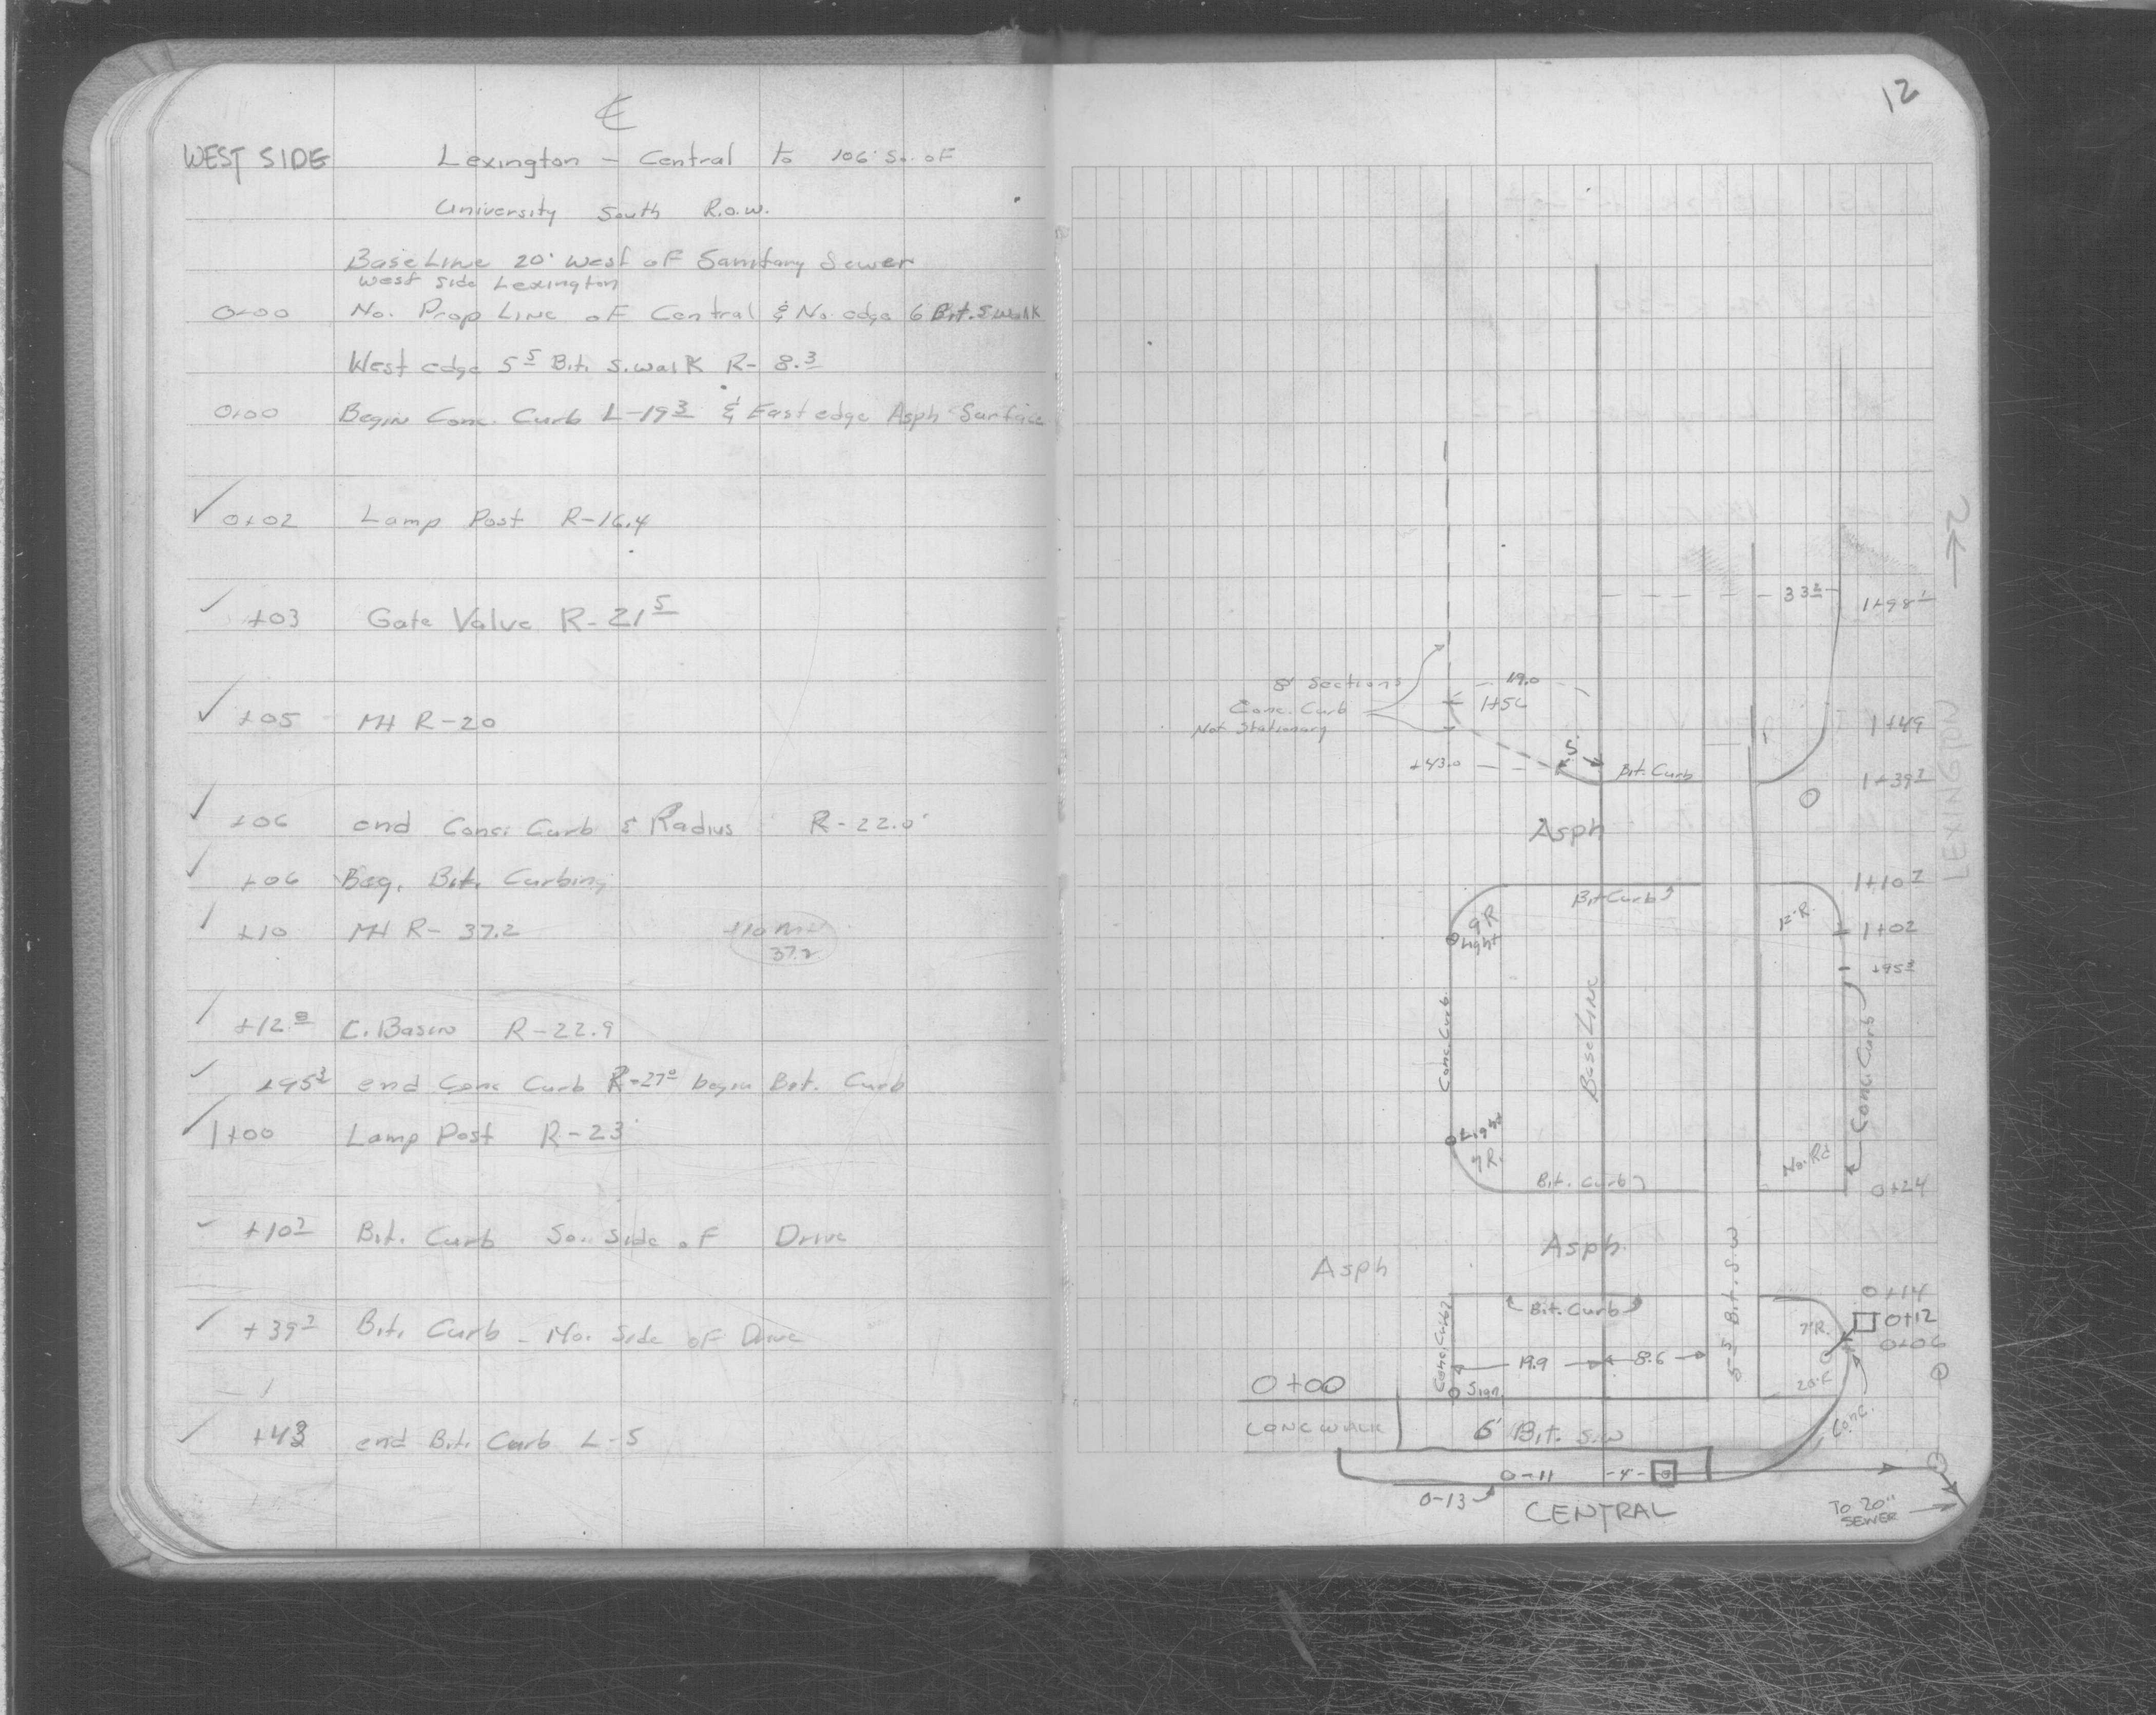 ℄
WEST SIDE Lexington - Central to 106' So. of
University South R.o.w.
Base Line 20' west of Sanitary Sewer
West side Lexington
0+00 No. Prop Line of Central & No. edge 6 Bit. S.walk
West edge 5⁵ Bit. S.walk R- 8.³
0+00 Begin Conc. Curb L-19³ & East edge Asph Surface
✓ 0+02 Lamp Post R-16.4
✓ +03 Gate Valve R-21⁵
✓ +05 MH R-20
✓ +06 end Conc. Curb & Radius R-22.0'
✓ +06 Beg. Bit. Curbing
✓ +10 MH R- 37.2 +10 MH
37.2
✓ +12.⁰ C. Basin R-22.9
✓ +95³ end Conc Curb R-27⁰ begin Bit. Curb
✓ 1+00 Lamp Post R-23
✓ +10² Bit. Curb So. Side of Drive
✓ +39² Bit. Curb - No. Side of Drive
✓ +43 end Bit. Curb L-5
12
1+98¹
8' Sections
Conc. Curb
Not Stationary
19.0
1+49
+43.0
5'
Bit. Curb
1+39²
LEXINGTON
Asph
1+10²
Bit Curb
9'R
Light
12'R.
1+02
+95³
Conc. Curb
Base Line
Conc. Curb
Light
7'R.
No. Rd
Bit. Curb
0+24
Asph
Asph
5⁵ Bit. S.W
0+14
Bit. Curb
7'R.
0+12
0+06
Conc. Curb
19.9
8.6
0+00
Sign
Conc.
CONC WALK
6' Bit. S.W
0-11
-4-
0-13
CENTRAL
To 20"
SEWER